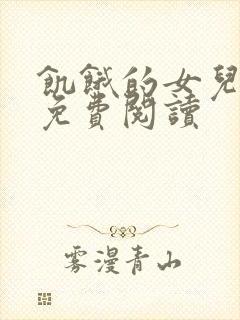 飢餓的女兒
免費閱讀
雾漫青山